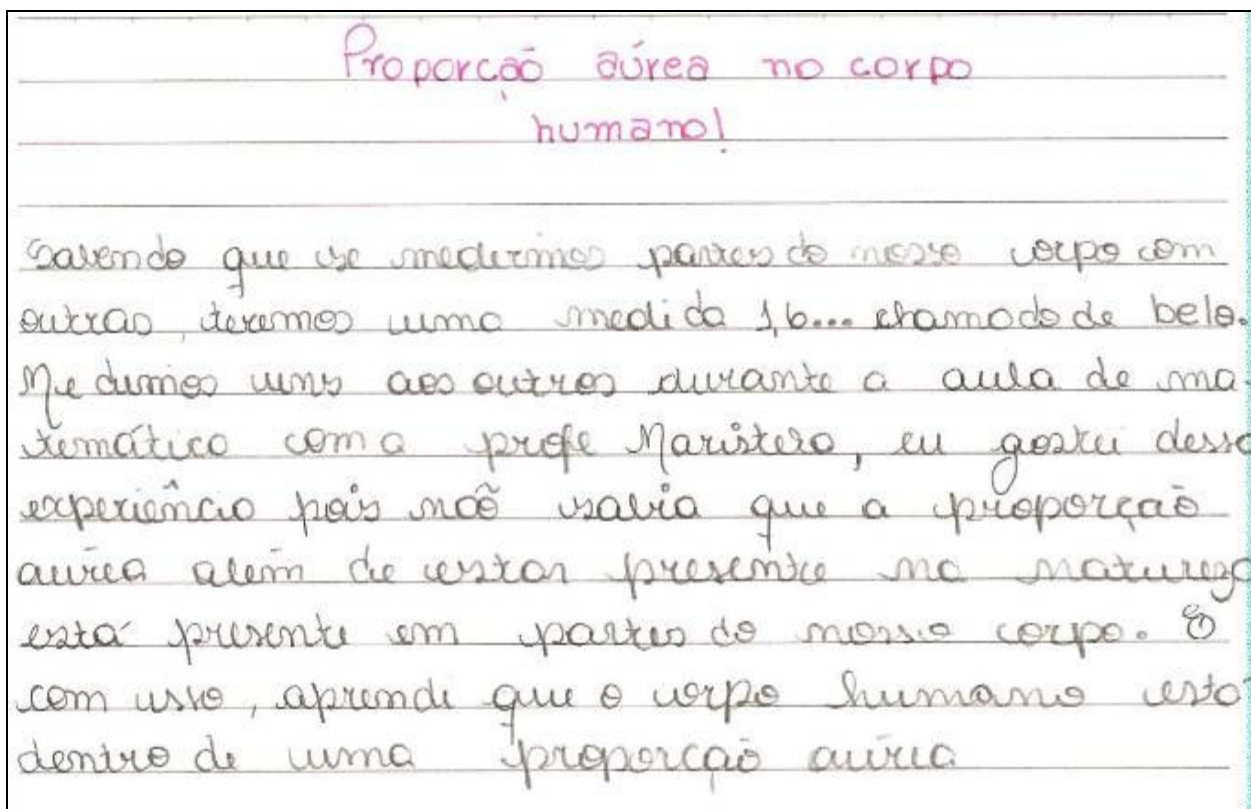 Proporção aúrea no corpo
humano!
Sabendo que se medirmos partes do nosso corpo com
outras, teremos uma medida 1,6... chamado de belo.
Medimos uns aos outros durante a aula de ma
temática com a profe Maristela, eu gostei dessa
experiência pois não sabia que a proporção
aúrea além de estar presente na natureza
está presente em partes do nosso corpo. E
com isso, aprendi que o corpo humano está
dentro de uma proporção aúrea